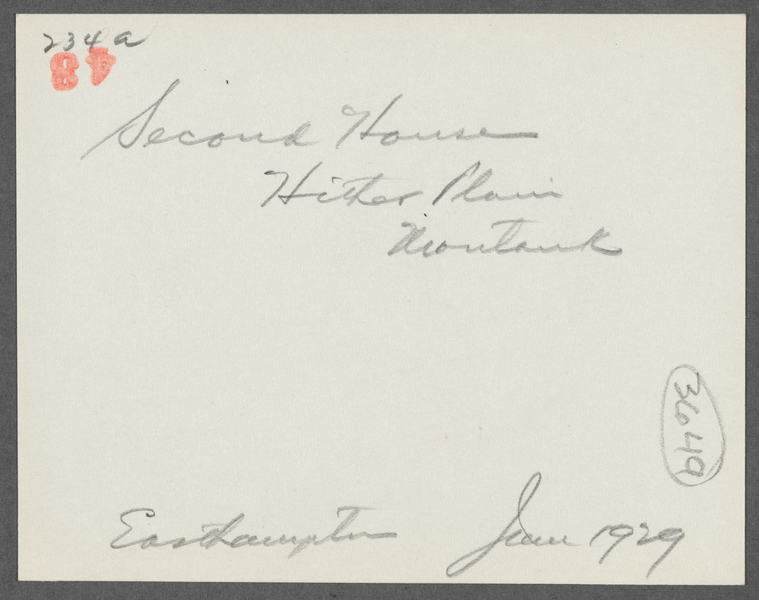 234a
48
Second House
Hither Plain
Montauk
3649
Easthampton June 1929